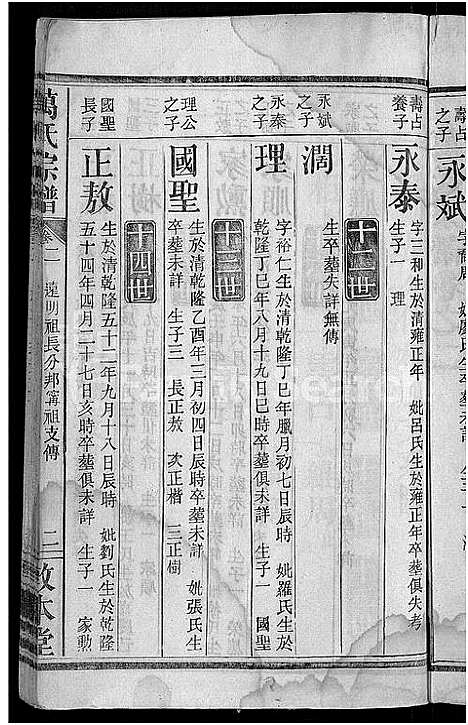 壽占之子
永斌
壽占養子
永泰
字三和生於清雍正年 妣呂氏生於雍正年卒墓俱失考
生子一 理
十二世
永斌之子
濶
生卒墓失詳無傳
永泰之子
理
字裕仁生於清乾隆丁巳年臘月初七日辰時 妣羅氏生於
乾隆丁巳年八月十九日巳時卒墓俱未詳 生子一 國聖
十三世
理公之子
國聖
生於清乾隆乙酉年三月初四日辰時卒墓未詳 妣張氏生
卒墓未詳 生子三 長正敖 次正楷 三正樹
十四世
國聖長子
正敖
生於清乾隆五十二年九月十八日辰時 妣劉氏生於乾隆
五十四年四月二十七日亥時卒墓俱未詳 生子一 家勳
萬氏宗譜
卷一
遠明祖長分邦籌祖支傳
二
敦本堂